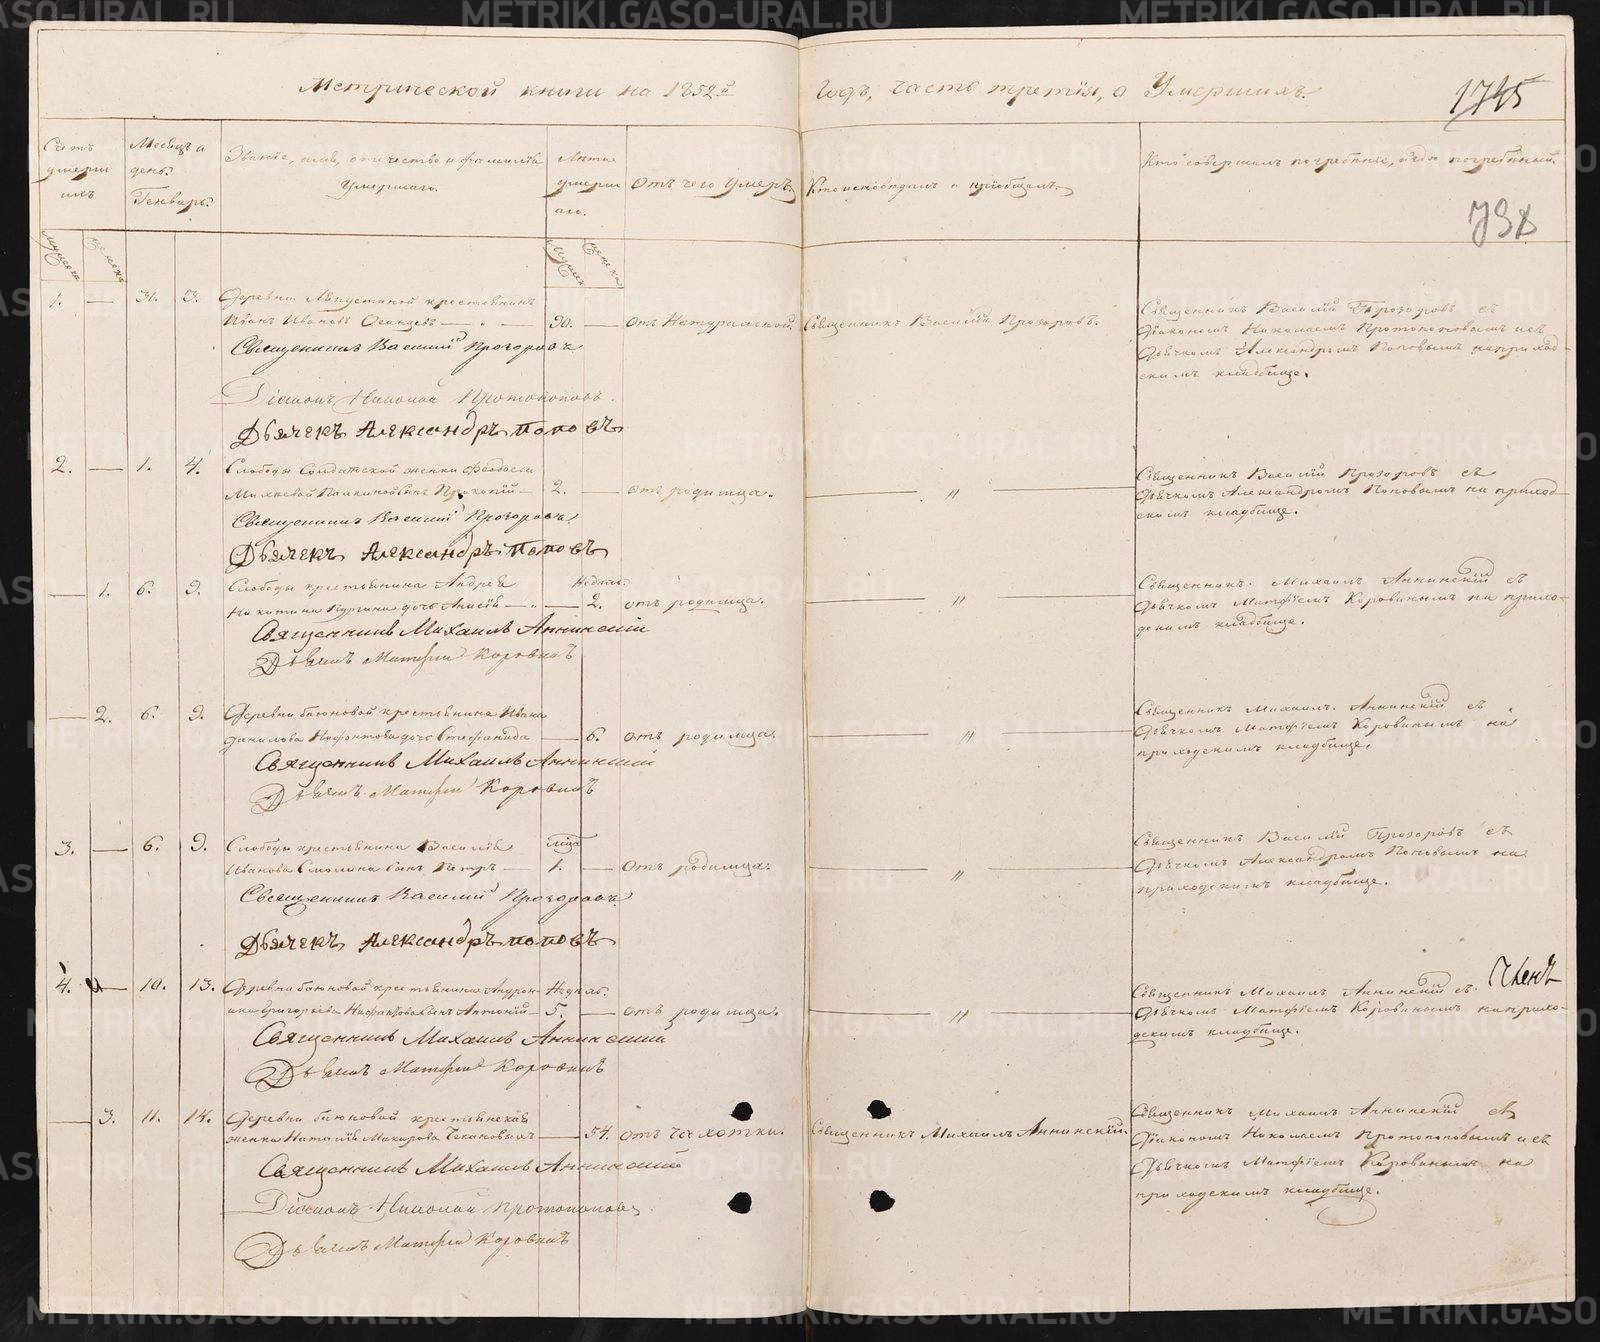 Метрической книги на 1852й годъ, часть третія, о Умершихъ.
1745
Счетъ умершихъ
Месяцъ и день.
Генварь.
Званіе, имя, отчество и фамилія умершаго.
Лета умершаго.
Отъ чего умеръ.
Кто исповедалъ и пріобщалъ.
Кто совершалъ погребеніе, и где погребены.
Мужеска
Женска
Мужеск
Женска
1. — 31. 3. Деревни крестьянинъ
Иванъ Ивановъ Осинцевъ — 90. — отъ Натуральной. Священникъ Василій Прозоровъ.
Священникъ Василій Прозоровъ съ
Діакономъ Николаемъ Протопоповымъ и съ
Дьячкомъ Александромъ Поповымъ на приход-
скимъ кладбище.
Священникъ Василій Прозоровъ
Діаконъ Николай Протопоповъ.
Дьячекъ Александръ Поповъ
2. — 1. 4. Слободы Солдатской женки Феодосьи
сынъ Прокопій — 2. — отъ родимца. — „ —
Священникъ Василій Прозоровъ съ
Дьячкомъ Александромъ Поповымъ на приход-
скимъ кладбище.
Священникъ Василій Прозоровъ
Дьячекъ Александръ Поповъ
— 1. 6. 9. Слободы крестьянина Андрея Недель.
Никитина дочь Анисія — „ — 2. отъ родимца. — „ —
Священникъ Михаилъ Аннинскій съ
Дьячкомъ Матфіемъ Коровинымъ на прихо-
дскимъ кладбище.
Священникъ Михаилъ Аннинскій
Дьячекъ Матфей Коровинъ
— 2. 6. 9. Деревни Баюновой крестьянина Ивана
Данилова Нифонтова дочь Стефанида — 6. отъ родимца. — „ —
Священникъ Михаилъ Аннинскій съ
Дьячкомъ Матфіемъ Коровинымъ на
приходскимъ кладбище.
Священникъ Михаилъ Аннинскій
Дьячекъ Матфей Коровинъ
3. — 6. 9. Слободы крестьянина Василія
Иванова Смолина сынъ Петръ — 1. — отъ родимца. — „ —
Священникъ Василій Прозоровъ съ
Дьячкомъ Александромъ Поповымъ на
приходскимъ кладбище.
Священникъ Василій Прозоровъ
Дьячекъ Александръ Поповъ
4. — 10. 13. Деревни Баюновой крестьянина Андрон- Недель.
ика Григорьева Нифонтова сынъ Антоній — 5. — отъ родимца. — „ —
Священникъ Михаилъ Аннинскій съ
Дьячкомъ Матфіемъ Коровинымъ на прихо-
дскимъ кладбище.
Членъ
Священникъ Михаилъ Аннинскій
Дьячекъ Матфей Коровинъ
— 3. 11. 14. Деревни Баюновой крестьянская
женка Наталія Макарова Чекановыхъ — 54. отъ чахотки. Священникъ Михаилъ Аннинскій.
Священникъ Михаилъ Аннинскій съ
Діакономъ Николаемъ Протопоповымъ и съ
Дьячкомъ Матфіемъ Коровинымъ на
приходскимъ кладбище.
Священникъ Михаилъ Аннинскій
Діаконъ Николай Протопоповъ.
Дьячекъ Матфей Коровинъ
METRIKI.GASO-URAL.RU